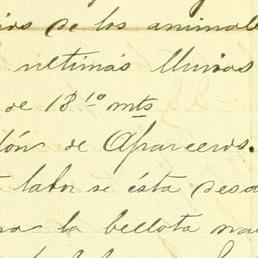 ios de los animale
ultimas lluvias
de 18 10 mts
ón de Aparceros.
labor se ésta desa
la bellota ma